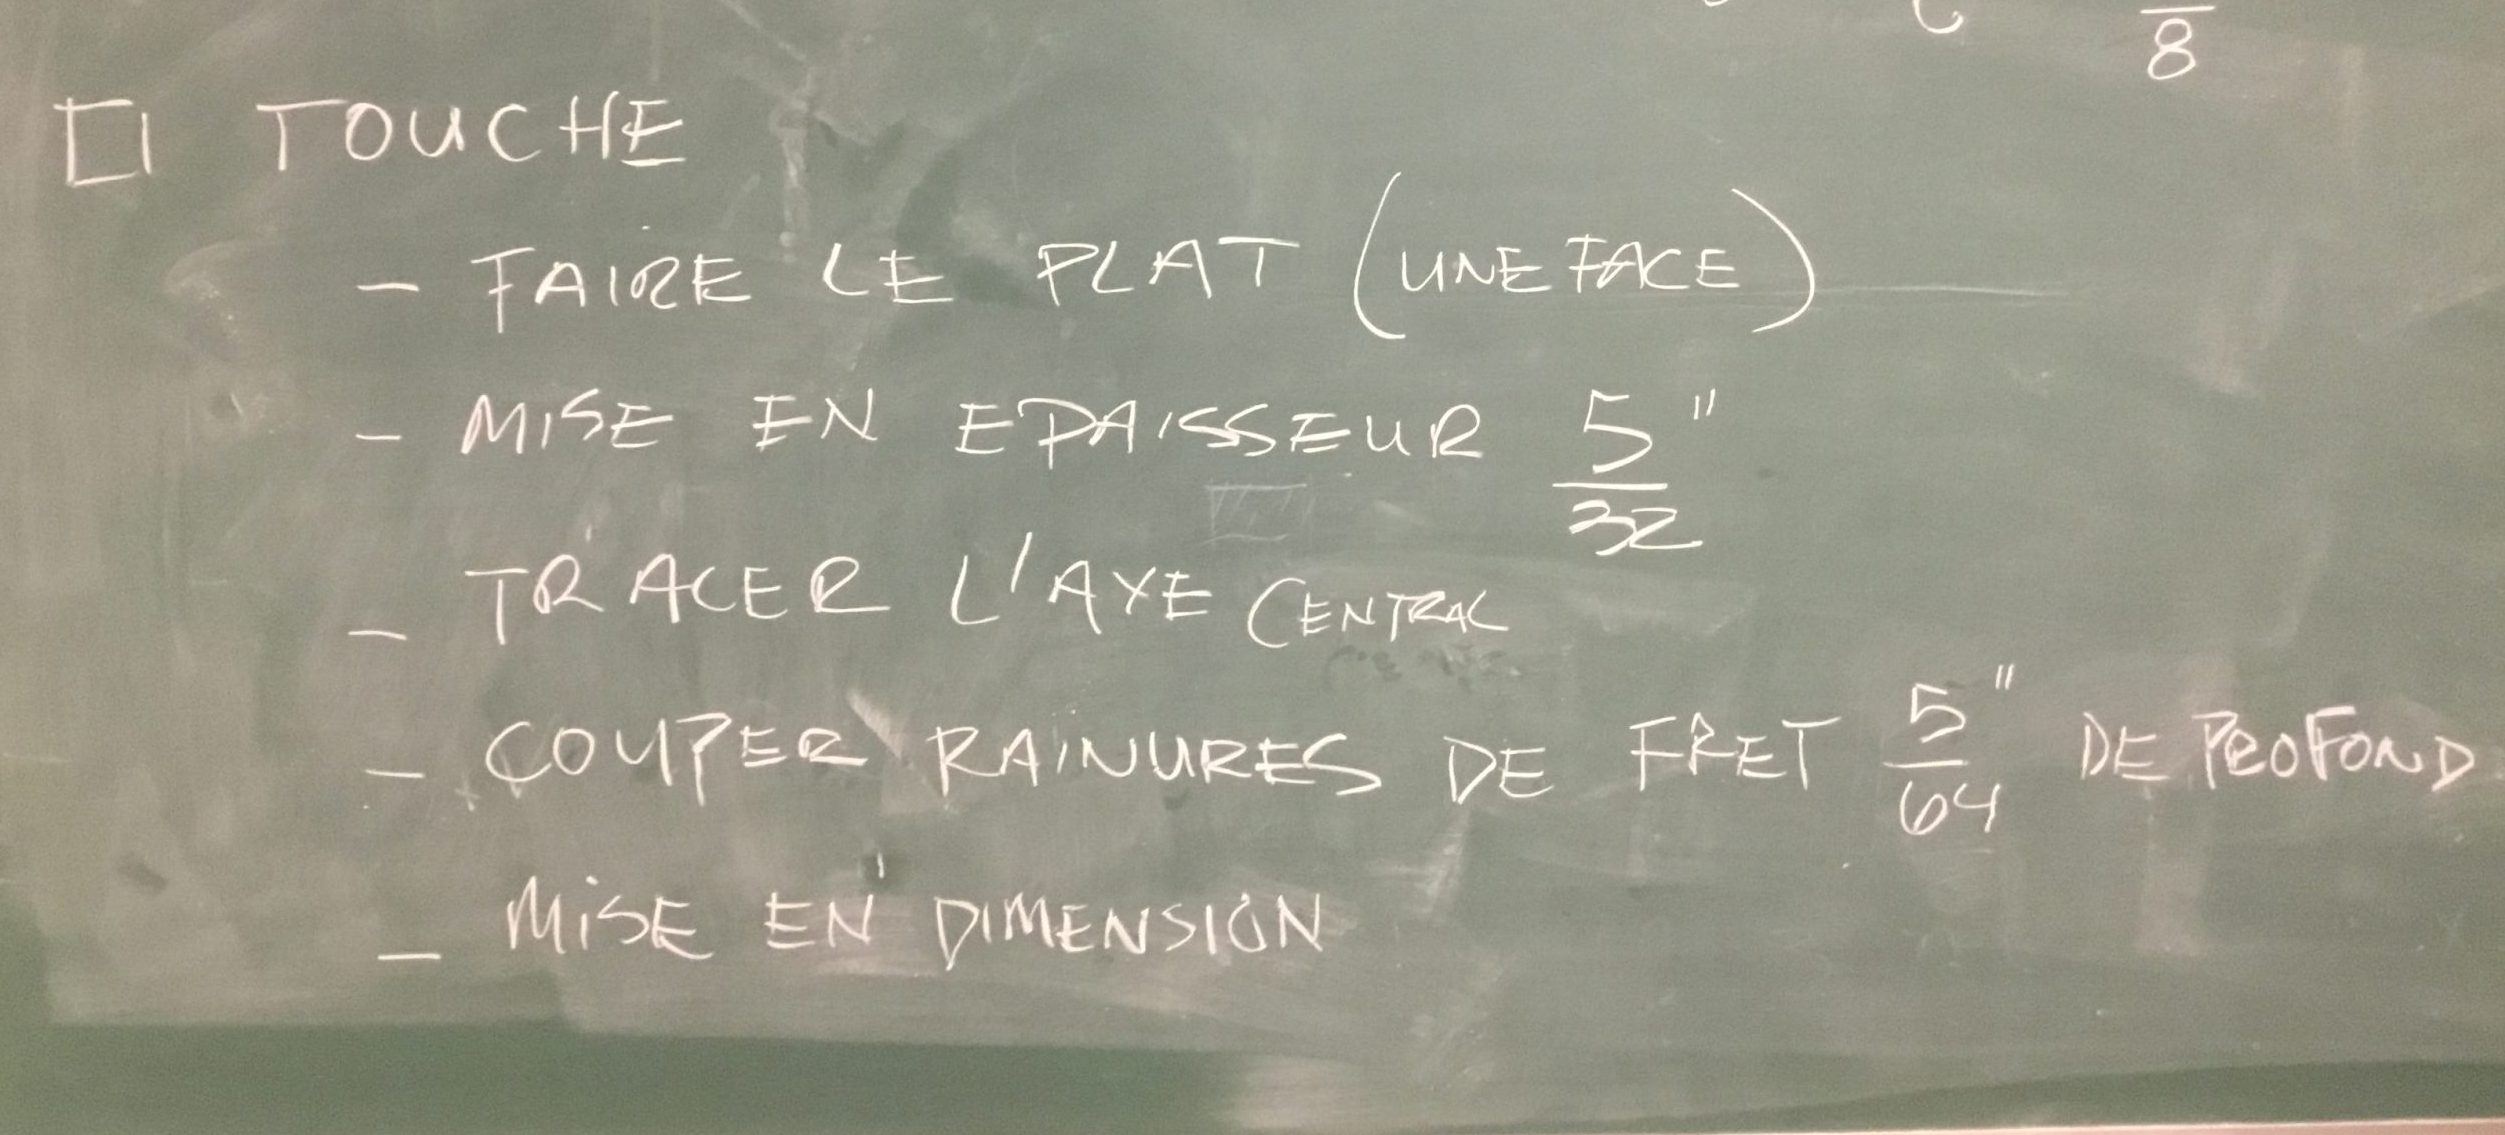 8
□ TOUCHE
- FAIRE LE PLAT (UNE FACE)
- MISE EN EPAISSEUR 5/32"
- TRACER L'AXE CENTRAL
- COUPER RAINURES DE FRET 5/64" DE PROFOND
- MISE EN DIMENSION